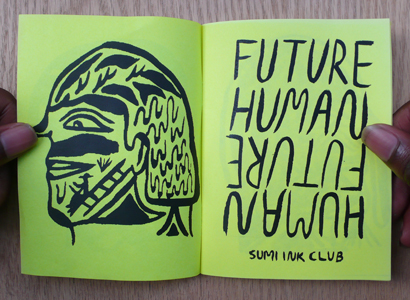 FUTURE
HUMAN
FUTURE
HUMAN
SUMI INK CLUB